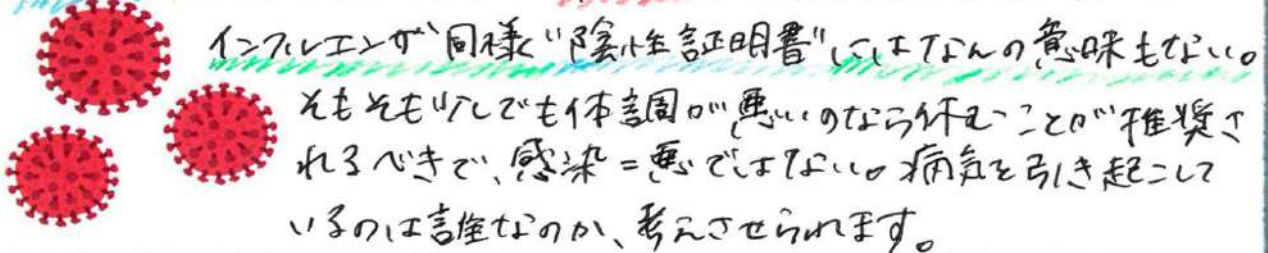 インフルエンザ同様"陰性証明書"にはなんの意味もない。
そもそも少しでも体調が悪いのなら休むことが推奨さ
れるべきで、感染=悪ではない。病気を引き起こして
いるのは誰なのか、考えさせられます。